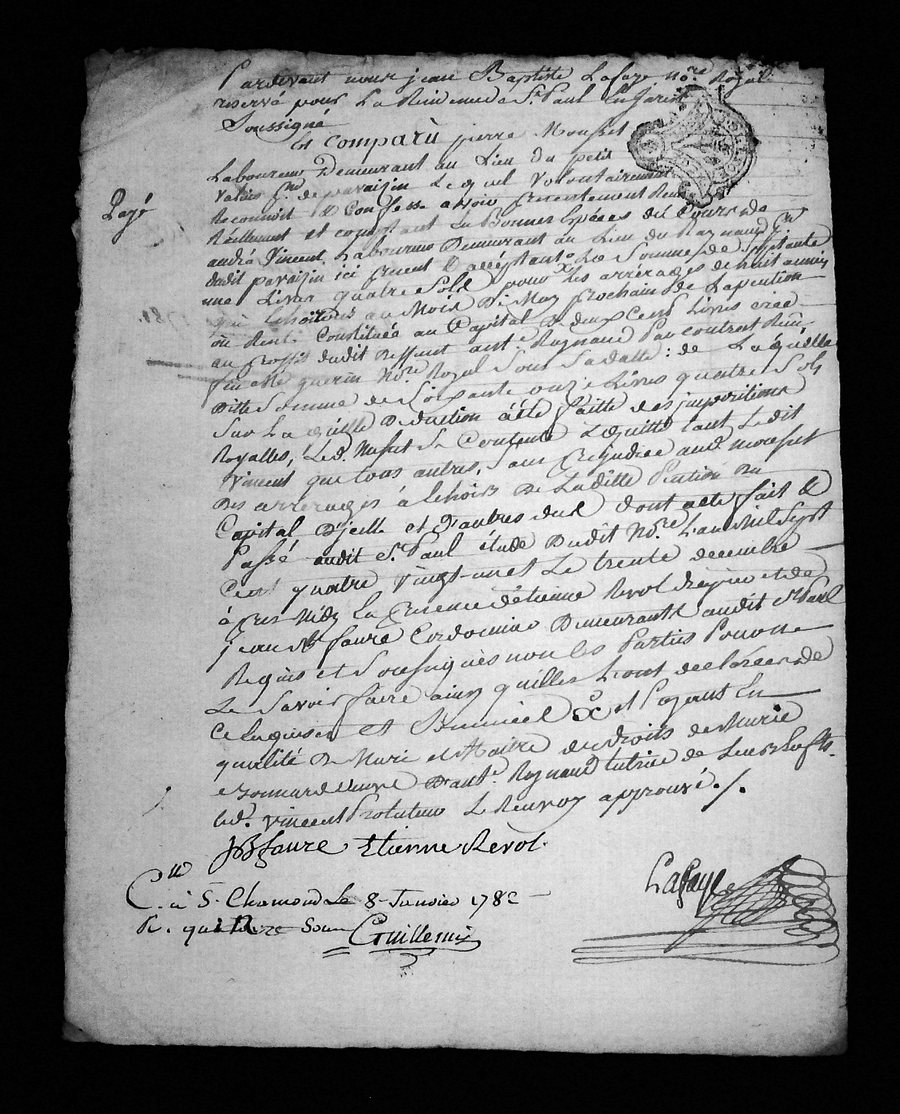 Pardevant nous jean Baptiste Lafaye no.re Royal
reservé pour La Residence de St. Paul En Jarest
Soussigné
Est comparû pierre Mousset
Laboureur Demeurant au Lieu du petit
de pavaizin Lequel Volontairement
Reconnoit & Confesse avoir presentement Reçu
Réellement et comptant En Bonnes Espèces du Cours de
andré Vincent Laboureur Demeurant au Lieu du Raynaud
dudit pavaizin ici present & acceptant La Somme de soixante
une Livres quatre Sols pour les arrerages de huit années
qui Echoiront au Mois De May prochain De La pention
ou Rente Constituée au Capital De deux Cent Livres créé
au proffit dudit Mousset ant.e Raynaud Par contrat Reçu
par Me guerin No.re Royal Sous Sa datte : de Laquelle
Ditte Somme de Soixante onze Livres quatre Sols
Sur La quelle Deduction a été faitte des impositions
Royalles, Led. Mousset Se Contente & quitte tant Ledit
Vincent que tous autres, Sans prejudice aud. mousset
Des arrerages à Echoir De Laditte Pention du
Capital D'icelle et d'autres dus dont acte fait &
Passé audit St. Paul étude Dudit No.re L'an Mil Sept
Cent quatre Vingt-un et Le trente decembre
après Midy En presence d'étienne Revol et de
Jean Bte faure Cordonnier Demeurants audit St Paul
Requis et Soussignés non les Parties Pour ne
Le Savoir faire ainsy qu'elles L'ont declaré en de
Ce Enquises et
qualité De Mari et Maitre des droits de Marie
Bonnard veuve D'ant.e Raynaud tutrice de Leurs Enfts.
led. Vincent Protuteur Le Renvoy approuvé ./.
JBfaure Etienne Revol.
Lafaye
C.lle à St. Chamond Le 8 Janvier 1782
R. quinze Sous Guillemin
Payé